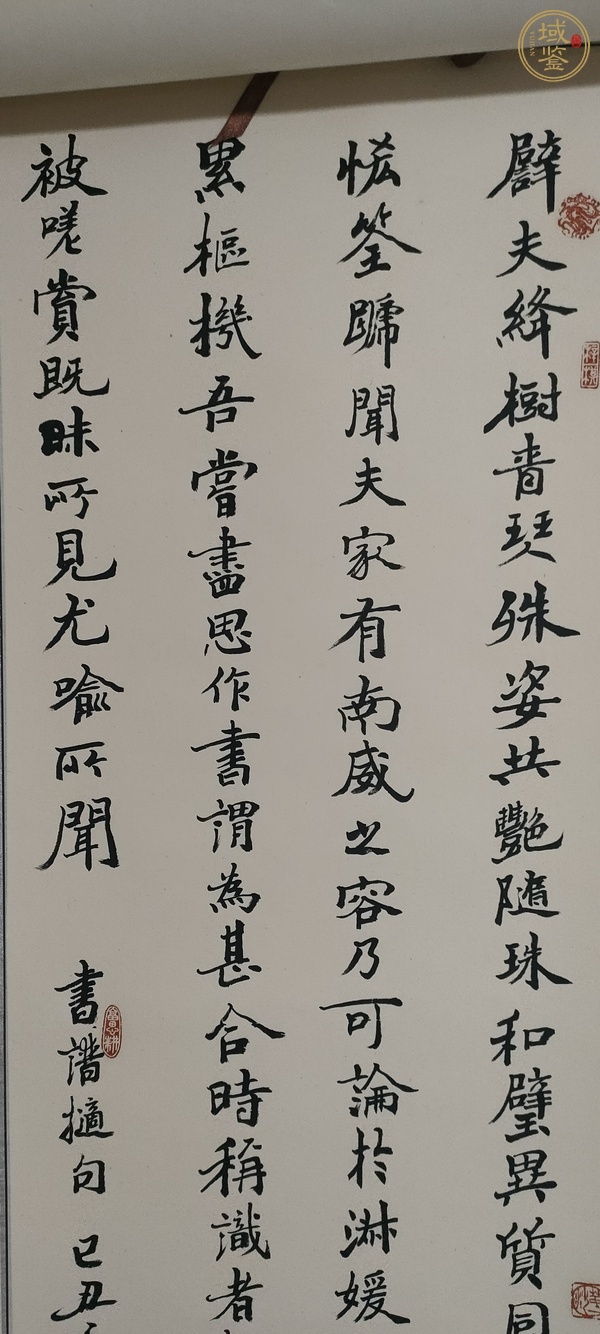 譬夫絳樹青琴殊姿共艷隨珠和璧異質同
筌蹄聞夫家有南威之容乃可論於淋媛
累樞機吾嘗盡思作書謂為甚合時稱識者
被嗟賞既昧所見尤喻所聞
書譜摘句
己丑
域鑒
YUJIAN